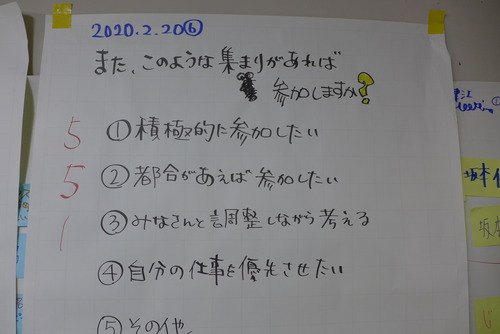 2020.2.20⑥
また、このような集まりがあれば
参加しますか?
5 ①積極的に参加したい
5 ②都合があえば参加したい
1 ③みなさんと調整しながら考える
④自分の仕事を優先させたい
⑤その他
坂本
坂本